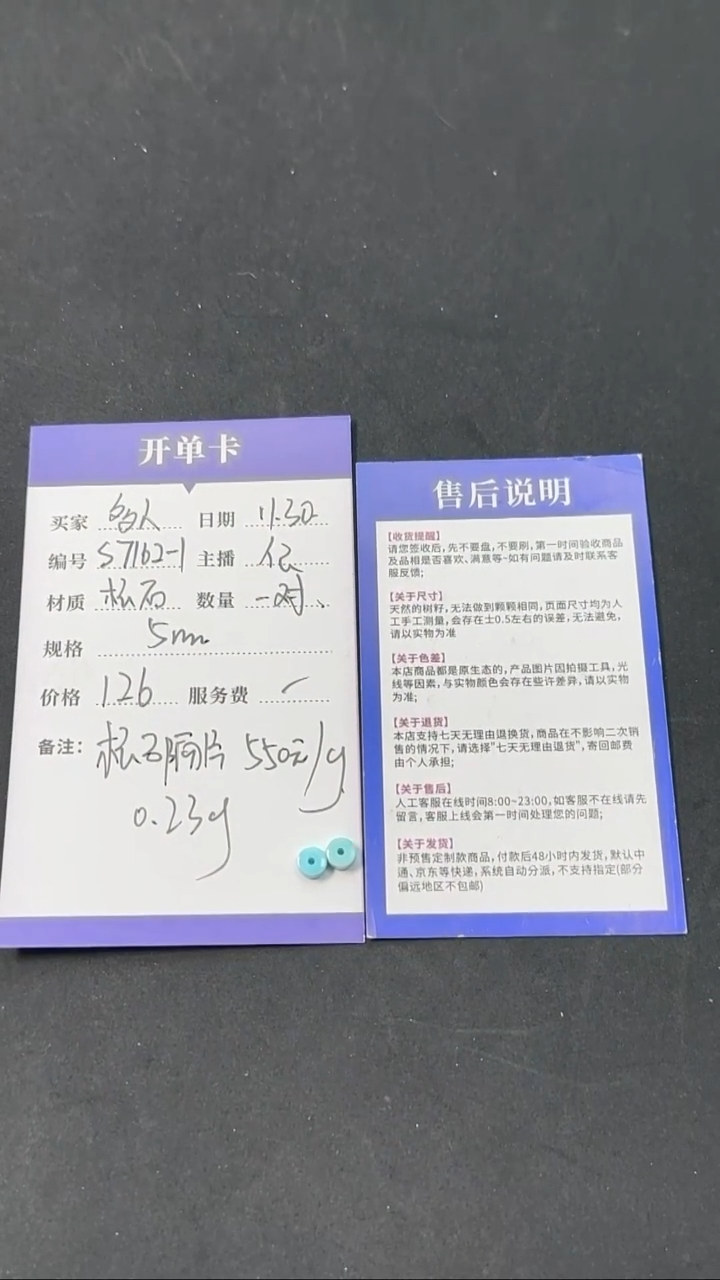 开单卡
买家 日期 11.30
编号 S7162-1 主播
材质 松石 数量 一对
规格 5mm
价格 126 服务费
备注: 松石隔片 550元/g
0.23g
售后说明
【收货提醒】
请您签收后,先不要盘,不要刷,第一时间验收商品
及品相是否喜欢、满意等~如有问题请及时联系客
服反馈;
【关于尺寸】
天然的树籽,无法做到颗颗相同,页面尺寸均为人
工手工测量,会存在士0.5左右的误差,无法避免,
请以实物为准
【关于色差】
本店商品都是原生态的,产品图片因拍摄工具,光
线等因素,与实物颜色会存在些许差异,请以实物
为准;
【关于退货】
本店支持七天无理由退换货,商品在不影响二次销
售的情况下,请选择"七天无理由退货",寄回邮费
由个人承担;
【关于售后】
人工客服在线时间8:00~23:00,如客服不在线请先
留言,客服上线会第一时间处理您的问题;
【关于发货】
非预售定制款商品,付款后48小时内发货,默认中
通、京东等快递,系统自动分派,不支持指定(部分
偏远地区不包邮)